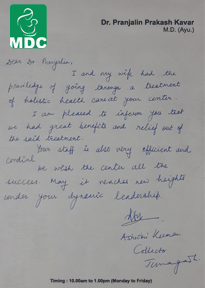 MDC
Dr. Pranjalin Prakash Kavar
M.D. (Ayu.)
Dear Dr Pranjalin,
I and my wife had the
priviledge of going through a treatment
of holistic health care at your center.
I am pleased to inform you that
we had great benefits and relief out of
the said treatment.
Your staff is also very efficient and
cordial.
We wish the center all the
success. May it reaches new heights
under your dynamic leadership.
Ashwini Kumar
Collector
Timing : 10.00am to 1.00pm (Monday to Friday)